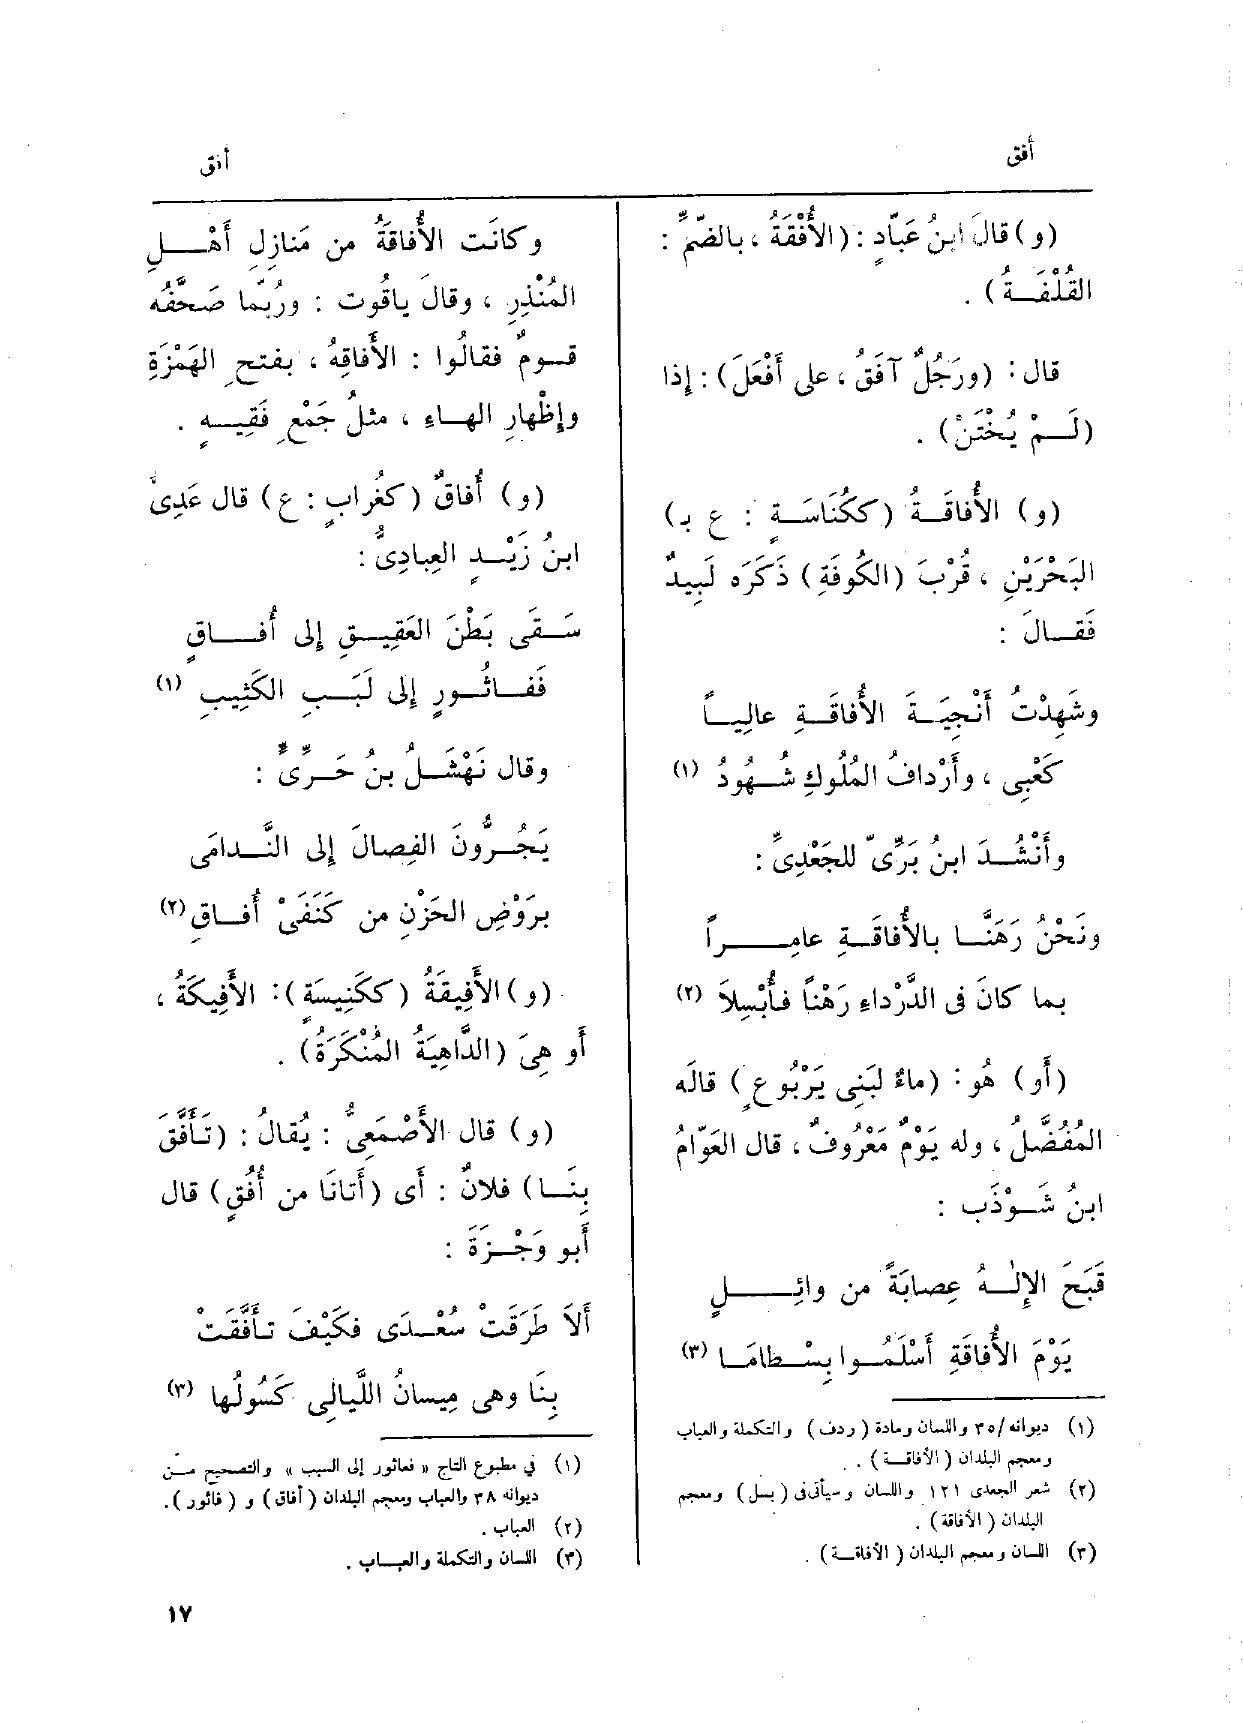 أفق
أفق
(و) قالَ ابنُ عَبّادٍ : (الأُفْقَةُ ، بالضّمِّ :
القُلْفَةُ) .
قال : (ورَجُلٌ آفَقُ ، على أَفْعَلَ) : إذا
(لَمْ يُخْتَنْ) .
(و) الأُفاقَةُ (ككُنَاسَةٍ : ع بـ)
البَحْرَيْنِ ، قُرْبَ (الكُوفَةِ) ذَكَرَه لَبِيدٌ
فَقالَ :
وشَهِدْتُ أَنْجِيَةَ الأُفاقَةِ عالِياً
كَعْبِى ، وأَرْدافُ المُلُوكِ شُهُودُ (١)
وأَنْشَدَ ابنُ بَرِّىّ للجَعْدِىِّ :
ونَحْنُ رَهَنَّا بالأُفاقَةِ عامِراً
بما كانَ فى الدَّرْداءِ رَهْناً فأُبْسِلاَ (٢)
(أَو) هُو : (ماءٌ لبَنِى يَرْبُوعٍ) قالَه
المُفَضَّلُ ، وله يَوْمٌ مَعْرُوفٌ ، قال العَوّامُ
ابنُ شَوْذَبٍ :
قَبَحَ الإِلٰهُ عِصابَةً من وائِلٍ
يَوْمَ الأُفاقَةِ أَسْلَمُوا بِسْطامَا (٣)
(١) ديوانه /٣٥ واللسان ومادة (ردف) والتكملة والعباب
ومعجم البلدان (الأفاقة) .
(٢) شعر الجعدى ١٢١ واللسان وسيأتى فى (بسل) ومعجم
البلدان (الأفاقة) .
(٣) اللسان ومعجم البلدان (الأفاقة) .
وكانَت الأُفاقَةُ من مَنازِلِ أَهْلِ
المُنْذِرِ ، وقالَ ياقُوت : ورُبَّما صَحَّفَه
قومٌ فقالُوا : الأَفاقِهُ ، بفتحِ الهَمْزَةِ
وإظْهارِ الهاءِ ، مثلُ جَمْعِ فَقِيهٍ .
(و) أُفاقٌ (كغُرابٍ : ع) قال عَدِىُّ
ابنُ زَيْدٍ العِبادِىُّ :
سَقَى بَطْنَ العَقِيقِ إلى أُفاقٍ
فَفاثُورٍ إلى لَبَبِ الكَثِيبِ (١)
وقال نَهْشَلُ بنُ حَرِّىٍّ :
يَجُرُّونَ الفِصالَ إلى النَّدامَى
بِرَوْضِ الحَزْنِ من كَنَفَىْ أُفاقِ (٢)
(و) الأَفِيقَةُ (ككَنِيسَةٍ) : الأَفِيكَةُ ،
أَو هِىَ (الدَّاهِيَةُ المُنْكَرَةُ) .
(و) قال الأَصْمَعِىُّ : يُقالُ : (تَأَفَّقَ
بِنَا) فلانٌ : أَى (أَتانَا من أُفُقٍ) قال
أَبو وَجْزَةَ :
أَلاَ طَرَقَتْ سُعْدَى فكَيْفَ تأَفَّقَتْ
بِنَا وهى مِيسانُ اللَّيالِى كَسُولُها (٣)
(١) فى مطبوع التاج « فعاثور إلى البب » والتصحيح من
ديوانه ٣٨ والعباب ومعجم البلدان (أفاق) و (فاثور) .
(٢) العباب .
(٣) اللسان والتكملة والعباب .
١٧